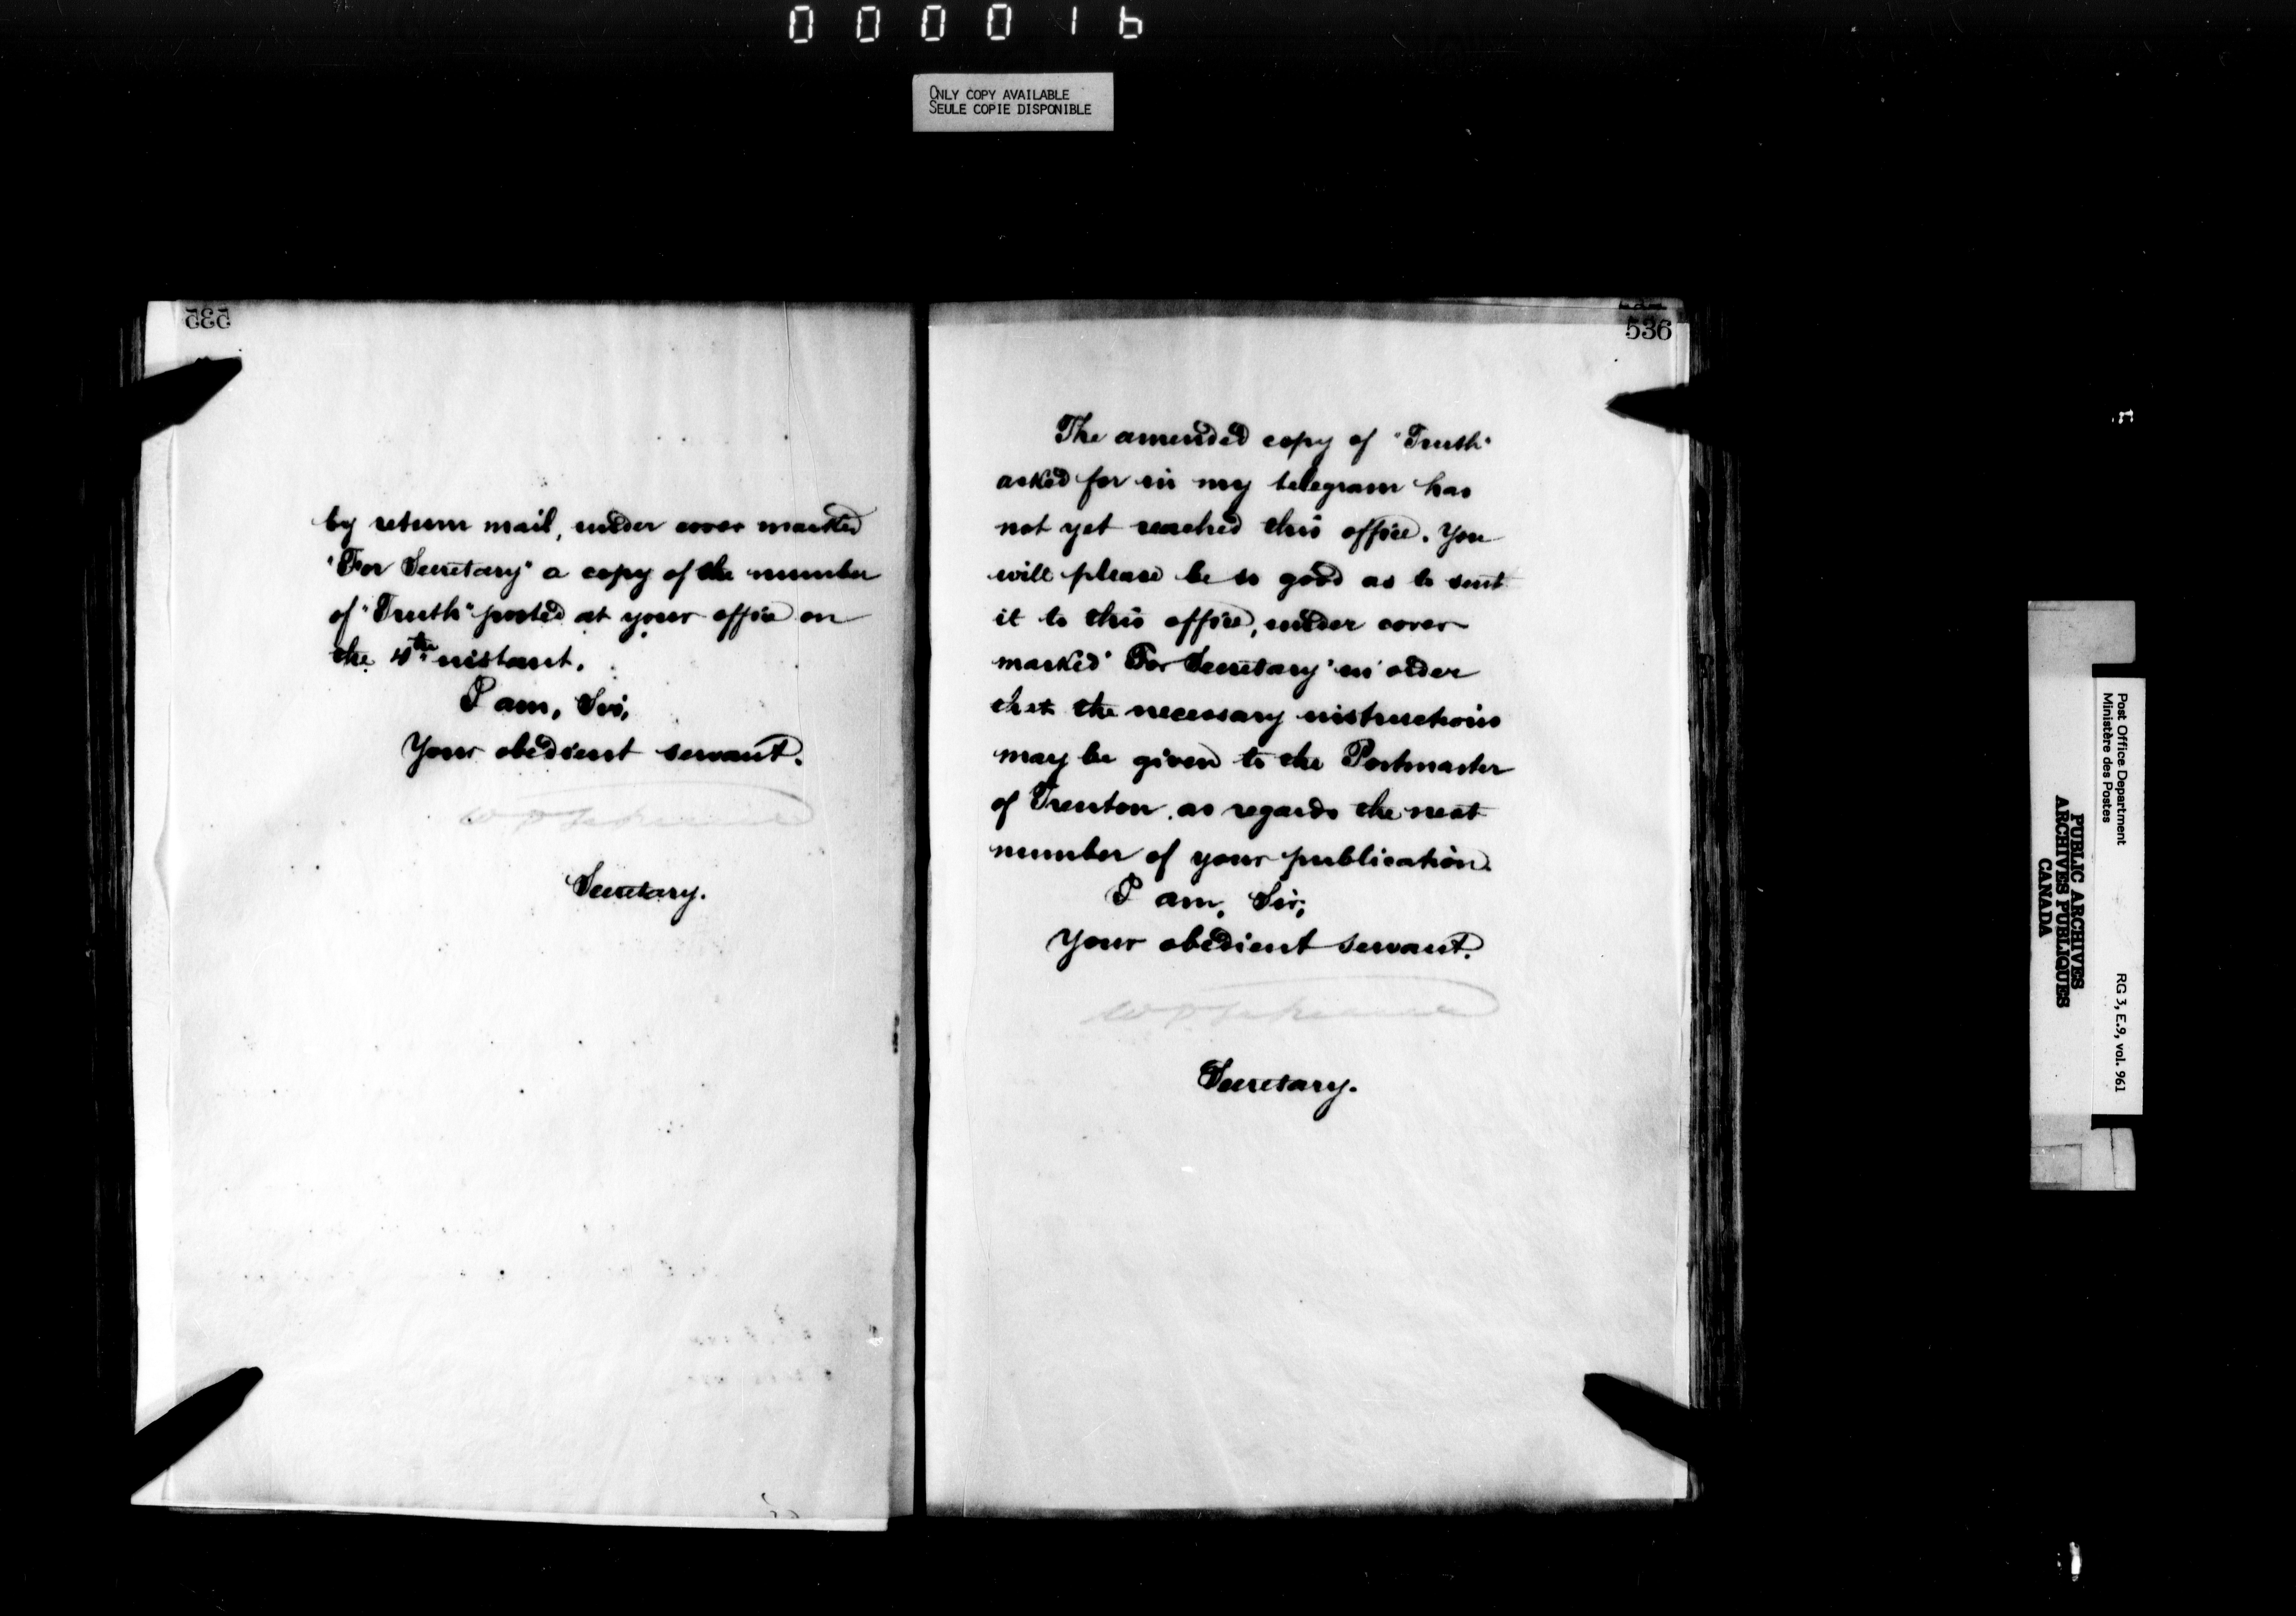 000016
ONLY COPY AVAILABLE
SEULE COPIE DISPONIBLE
535
by return mail, under cover marked
"For Secretary" a copy of the number
of "Truth" posted at your office on
the 4th instant.
I am, Sir,
Your obedient servant.
Secretary.
536
The amended copy of "Truth"
asked for in my telegram has
not yet reached this office. You
will please be so good as to sent
it to this office, under cover
marked "For Secretary" in order
that the necessary instructions
may be given to the Postmaster
of Trenton as regards the next
number of your publication.
I am, Sir,
Your obedient servant.
Secretary.
Post Office Department
Ministère des Postes
RG 3, E.9, vol. 961
PUBLIC ARCHIVES
ARCHIVES PUBLIQUES
CANADA